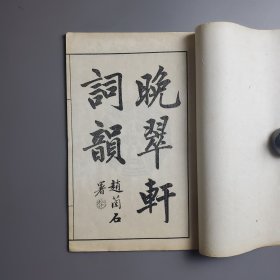 晚翠軒
詞韻
趙蘭石
署